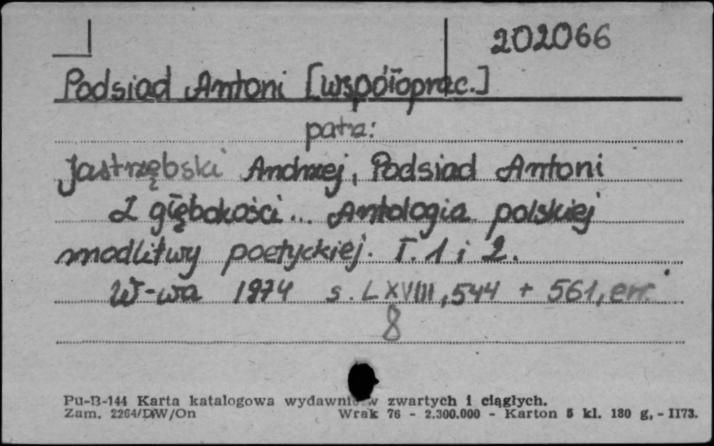 202066
Podsiad Antoni [współoprac.]
patrz:
Jastrzębski Andrzej, Podsiad Antoni
Z głębokości... Antologia polskiej
modlitwy poetyckiej. T. 1 i 2.
W-wa 1974 s. LXVIII, 544 + 561, err.
8
Pu-B-144 Karta katalogowa wydawnictw zwartych i ciągłych.
Zam. 2264/DW/On Wrak 76 - 2.300.000 - Karton 5 kl. 180 g, - 1173.